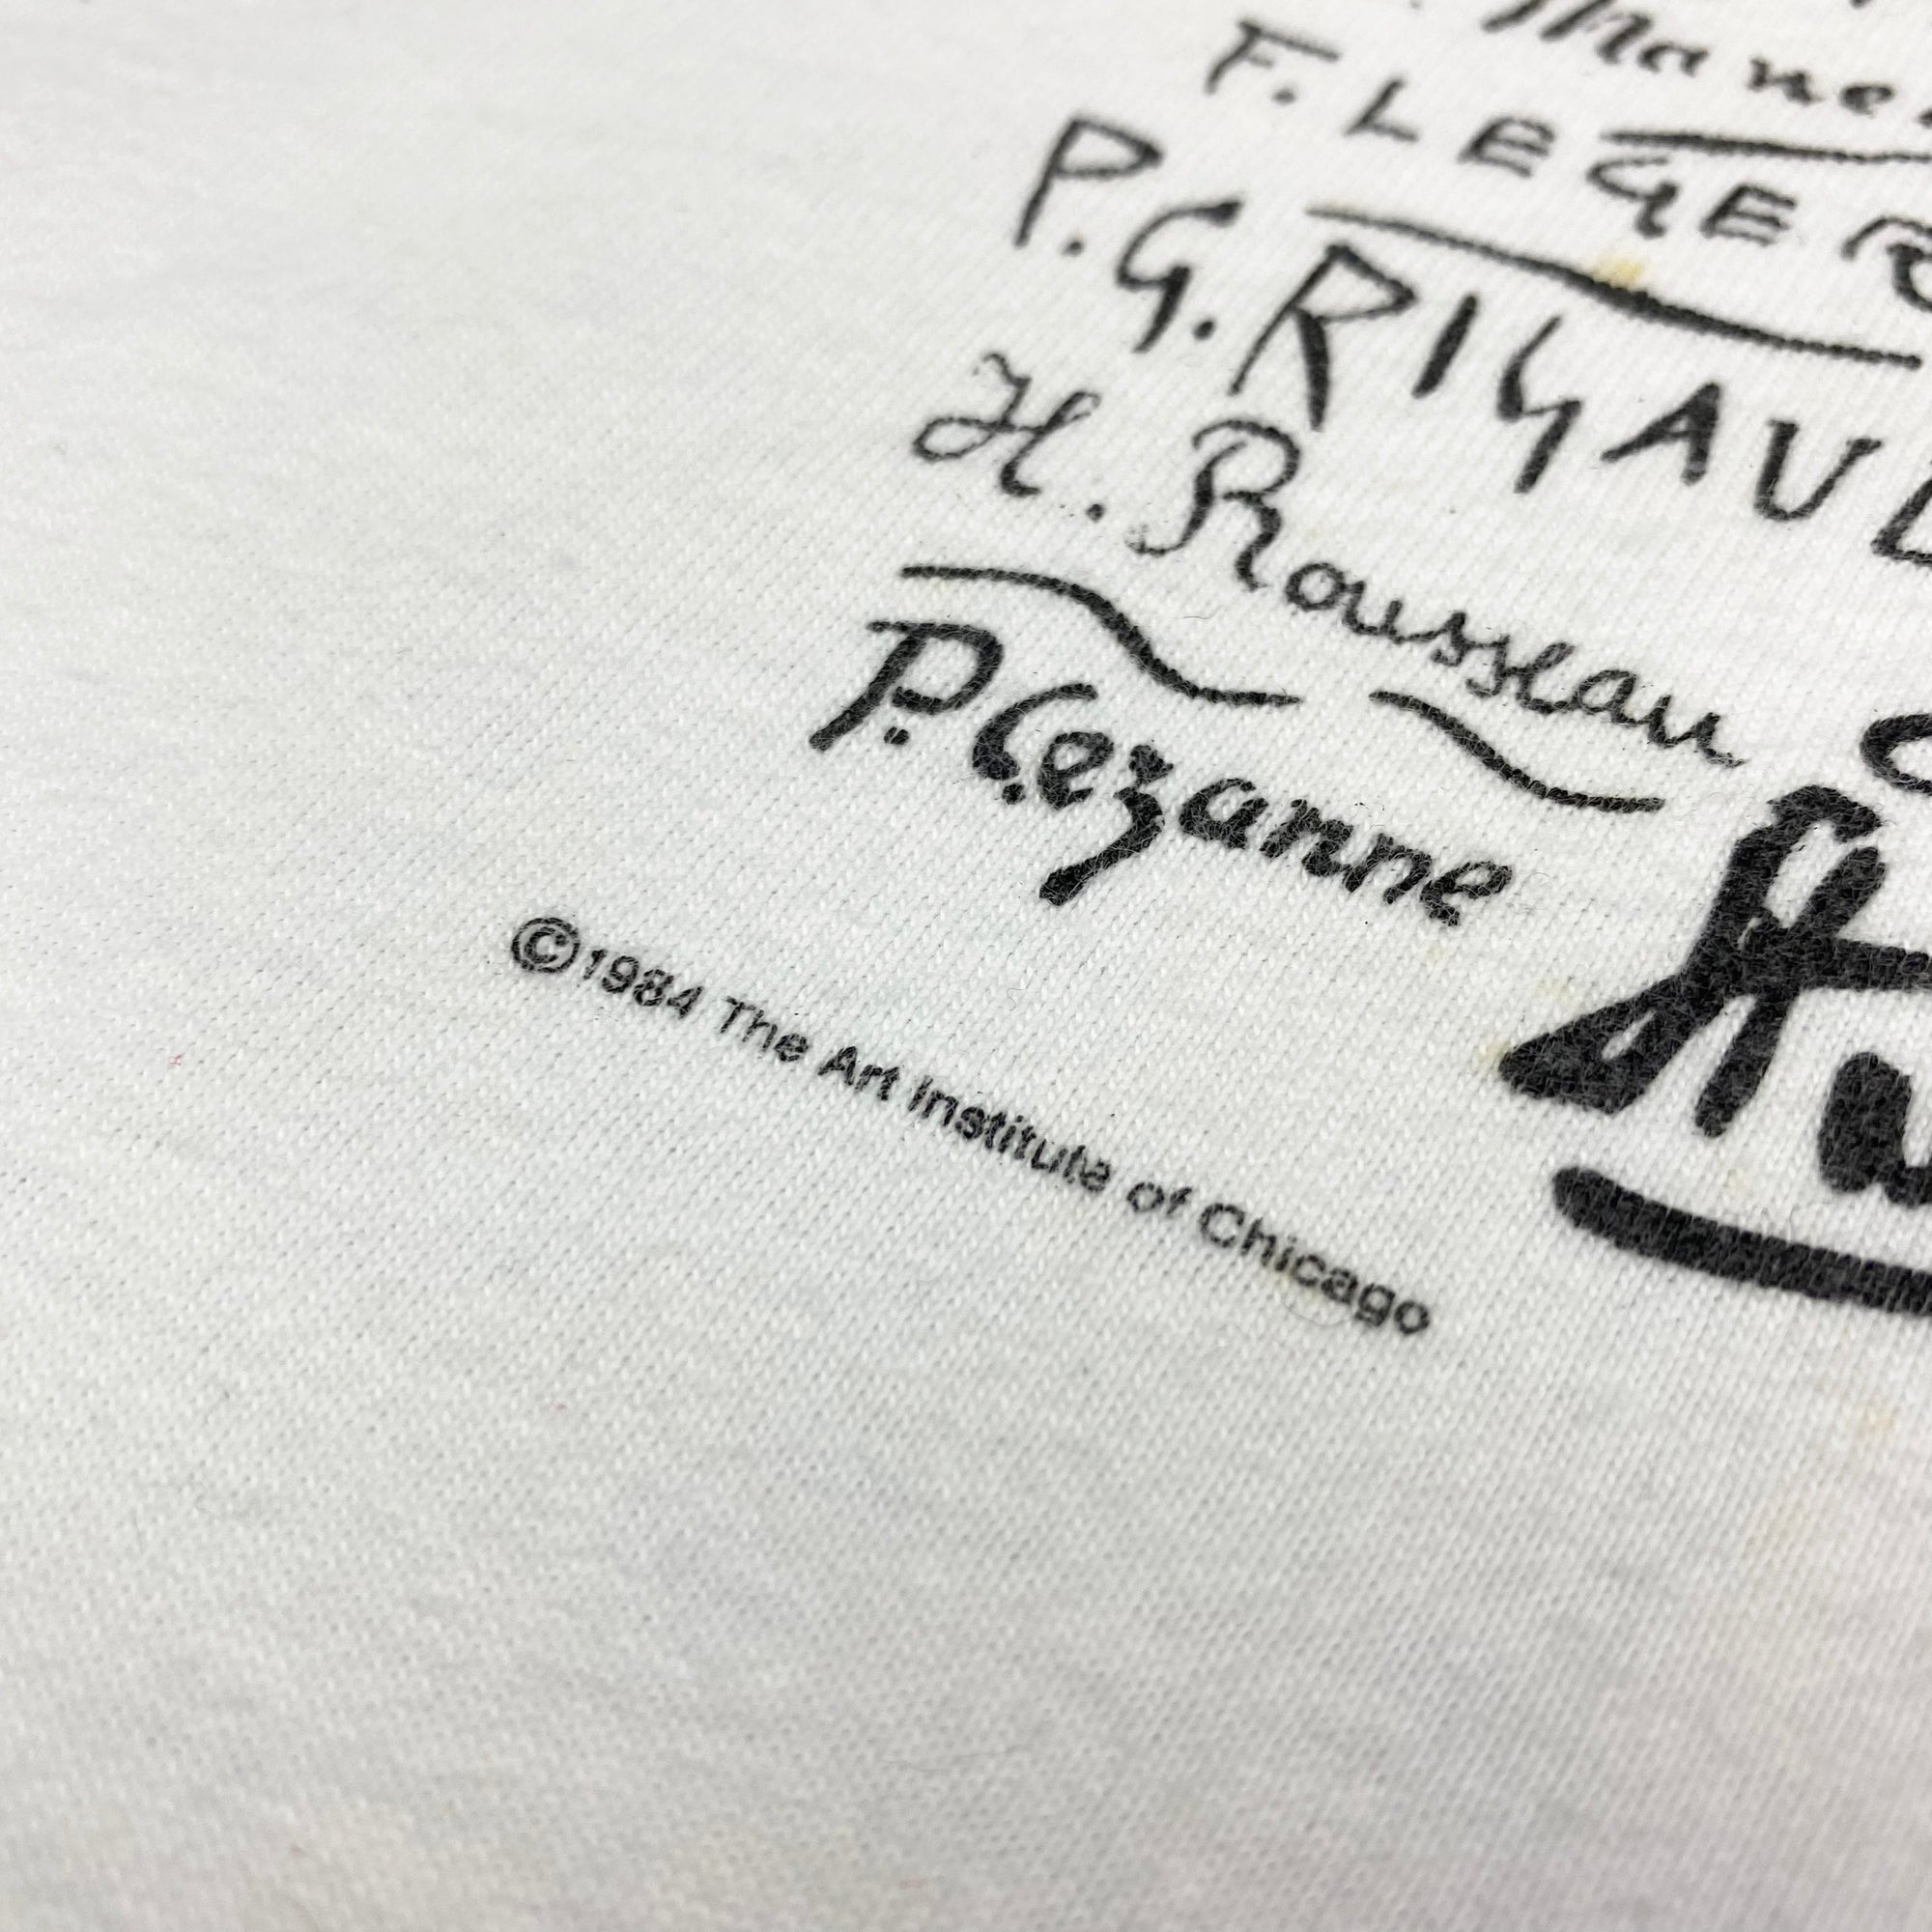 F. LEGER
P. G. RIGAUD
H. Rousseau
P. Cezanne
©1984 The Art Institute of Chicago